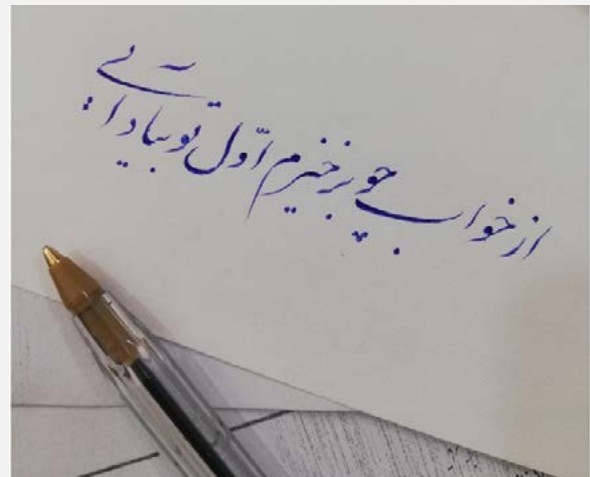 از خواب چو برخیزم اوّل تو بیاد آیی